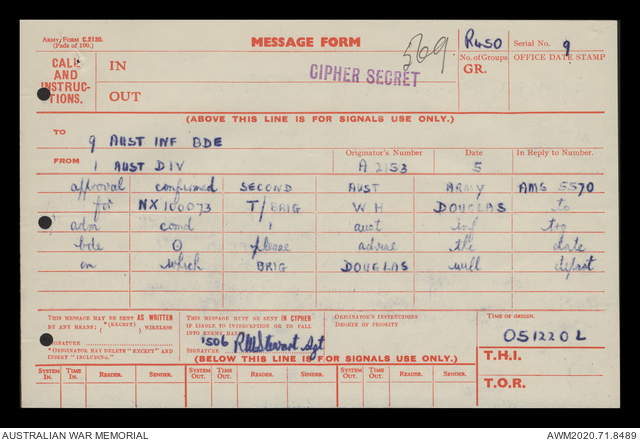 Army Form C.2130.
(Pads of 100.)
MESSAGE FORM
569
R450
Serial No. 9
CALL
AND
INSTRUC-
TIONS.
IN
CIPHER SECRET
No. of Groups
GR.
OFFICE DATE STAMP
OUT
(ABOVE THIS LINE IS FOR SIGNALS USE ONLY.)
TO
9 AUST INF BDE
FROM 1 AUST DIV
Originator's Number A 2153
Date 5
In Reply to Number.
approval confirmed SECOND AUST ARMY AMS 5570
for NX100073 T/BRIG W H DOUGLAS to
adm comd 1 aust inf trg
bde O please advise the date
on which BRIG DOUGLAS will depart
THIS MESSAGE MAY BE SENT AS WRITTEN
BY ANY MEANS; (EXCEPT) WIRELESS
SIGNATURE
*ORIGINATOR MAY DELETE "EXCEPT" AND
INSERT "INCLUDING."
THIS MESSAGE MUST BE SENT IN CIPHER
IF LIABLE TO INTERCEPTION OR TO FALL
INTO ENEMY
1506
SIGNATURE Sgt
ORIGINATOR'S INSTRUCTIONS
DEGREE OF PRIORITY
TIME OF ORIGIN.
051220L
(BELOW THIS LINE IS FOR SIGNALS USE ONLY.)
T.H.I.
SYSTEM IN. TIME IN. READER. SENDER. SYSTEM OUT. TIME OUT. READER. SENDER. SYSTEM OUT. TIME OUT. READER. SENDER.
T.O.R.
AUSTRALIAN WAR MEMORIAL
AWM2020.71.8489